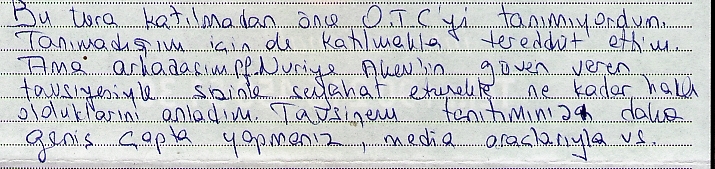 Bu tura katılmadan önce O.T.C'yi tanımıyordum.
Tanımadığım için de katılmakla tereddüt ettim.
Ama arkadaşım Nuriye güven veren
tavsiyesiyle sizinle seyahat etmekle ne kadar haklı
olduklarını anladım. Tavsiyem tanıtımınızı daha
geniş çapta yapmanız, media araçlarıyla vs.